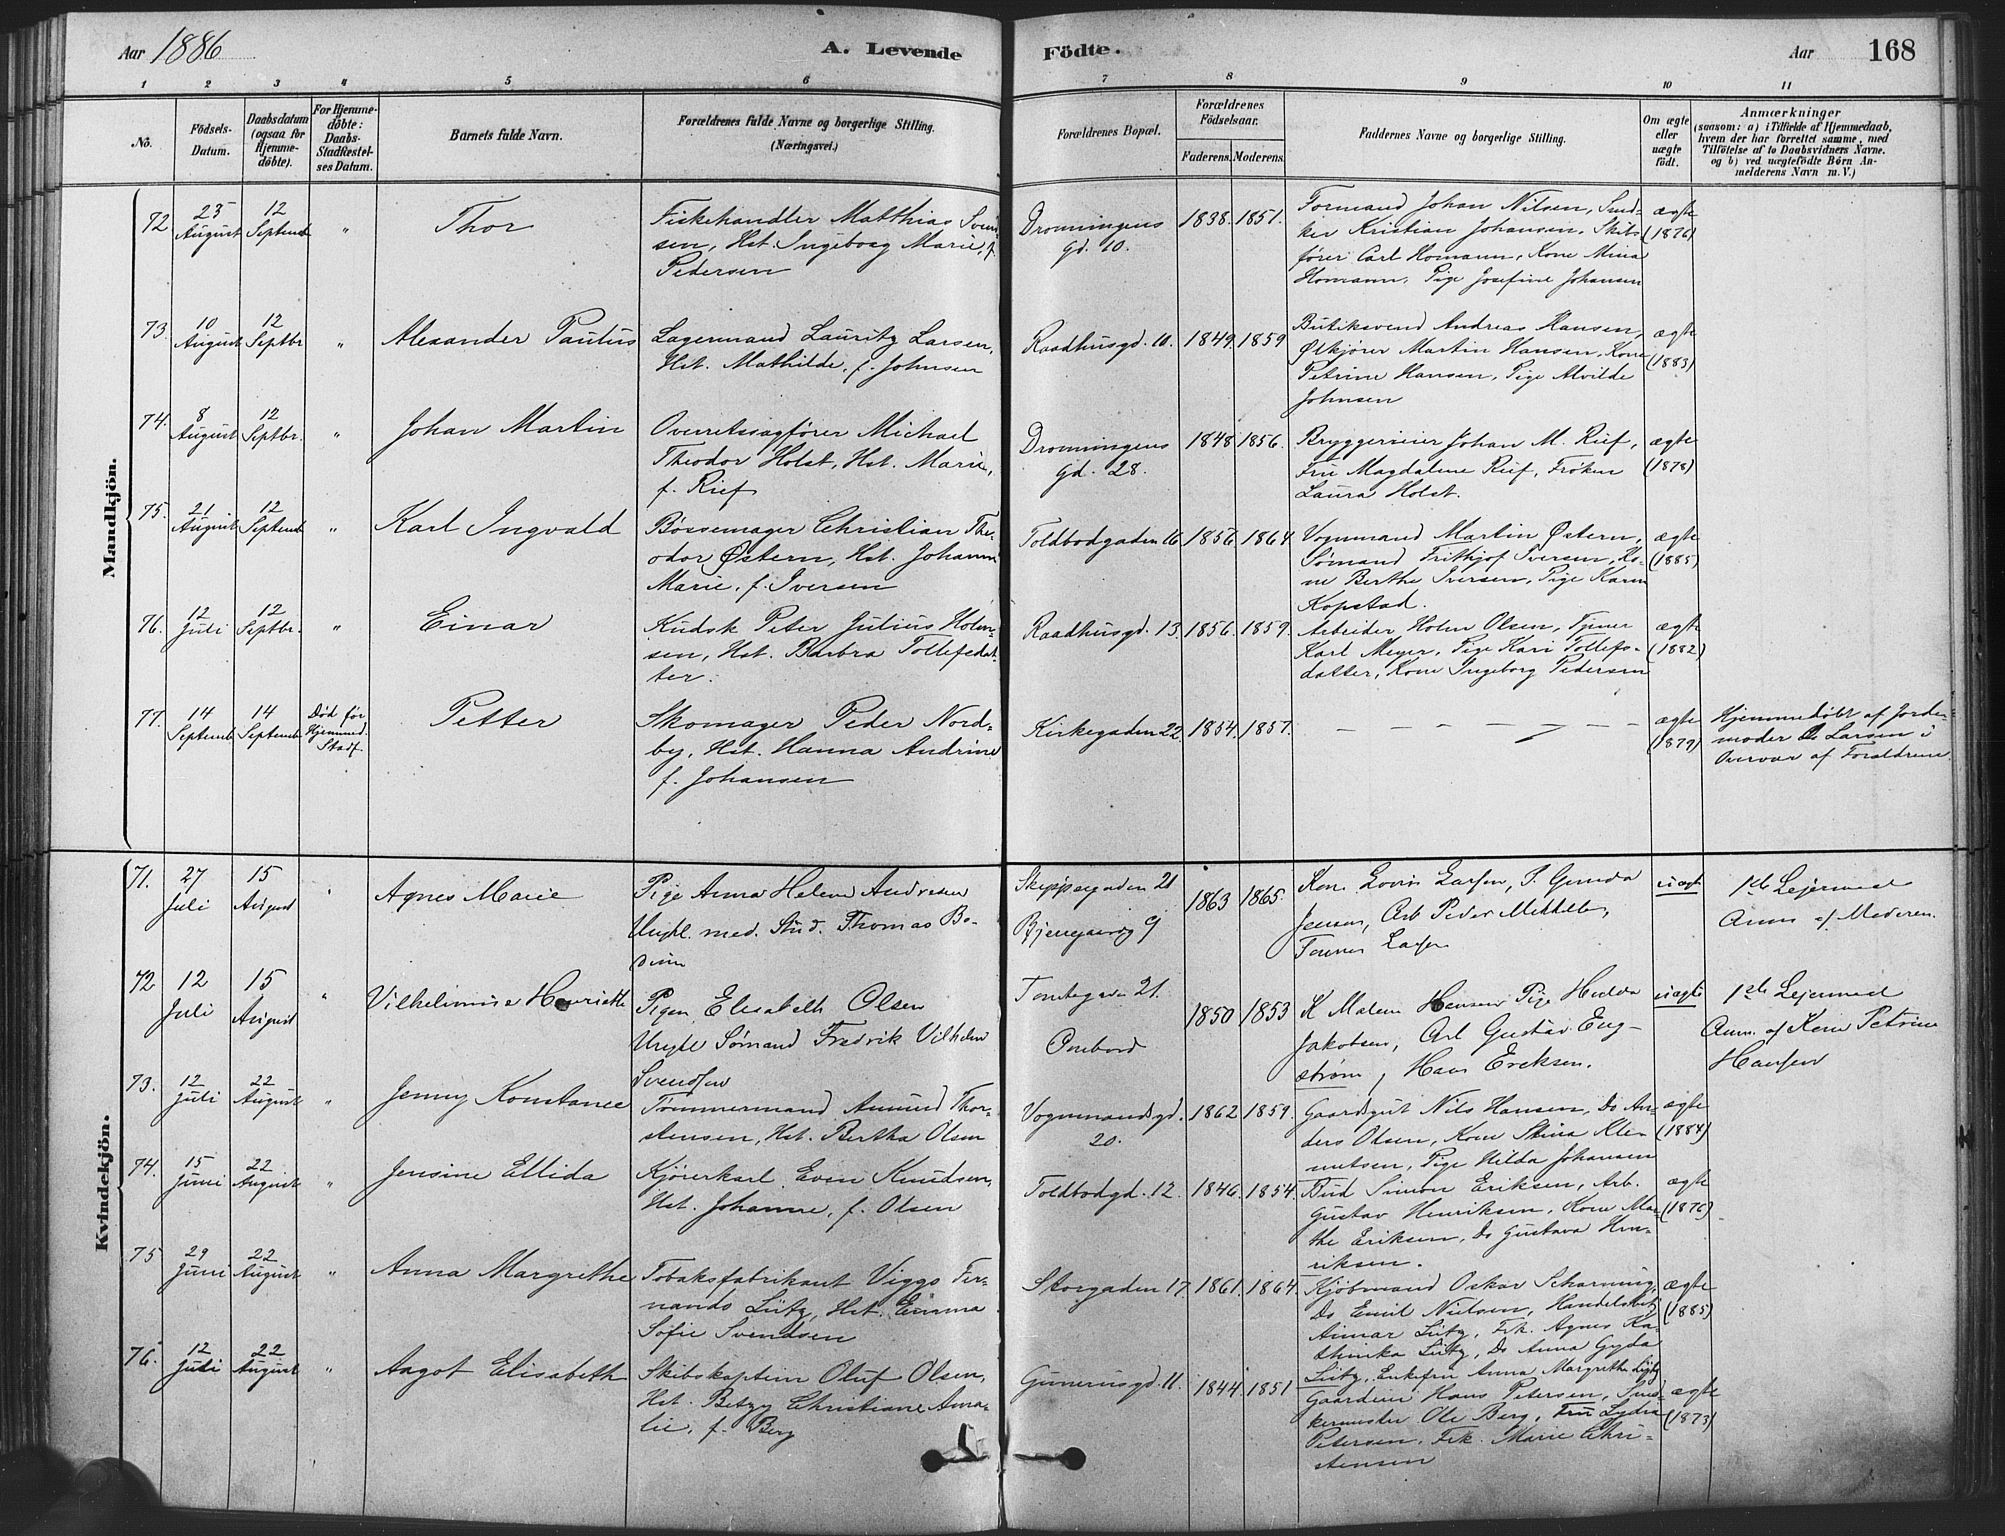 Aar 1886
A. Levende
Födte.
Aar
168
1 2 3 4 5 6 7 8 9 10 11
No.
Födsels-
Datum.
Daabsdatum
(ogsaa for
Hjemme-
döbte).
For Hjemme-
döbte:
Daabs-
Stadfæstel-
ses Datum.
Barnets fulde Navn.
Forældrenes fulde Navne og borgerlige Stilling.
(Næringsvei.)
Forældrenes Bopæl.
Forældrenes
Födselsaar.
Faderens. Moderens.
Faddernes Navne og borgerlige Stilling.
Om ægte
eller
uægte
født.
Anmærkninger
(saasom: a) i Tilfælde af Hjemmedaab,
hvem der har forrettet samme, med
Tilföielse af to Daabsvidners Navne.
og b) ved uægtefödte Börn An-
melderens Navn m. V.)
Mandkjön.
72 25 August 12 Septemb " Thor
Fiskehandler Matthias Svend-
sen, Hst. Ingeborg Marie, f.
Pedersen
Dronningens
gd. 10.
1838. 1851.
Formand Johan Nilsen, Sned-
ker Kristian Johansen, Skibs-
fører Carl Homann, Kone Mina
Homann, Pige Josefine Johansen
ægte
(1876)
73. 10 August 12 Septbr " Alexander Paulus
Lagermand Lauritz Larsen,
Hst. Mathilde, f. Johnsen
Raadhusgd. 10. 1849. 1859
Butiksvend Andreas Hansen,
Ølkjører Martin Hansen, Kone
Petrine Hansen, Pige Alvilde
Johnsen
ægte
(1883)
74. 8 August 12 Septbr. " Johan Martin
Overretssagfører Michael
Theodor Holst, Hst. Marie,
f. Rief
Dronningens
gd. 28.
1848 1856.
Bryggerieier Johan M. Rief,
Fru Magdalene Rief, Frøken
Laura Holst.
ægte
(1878)
75. 21 August 12 Septemb " Karl Ingvald
Bøssemager Christian The-
odor Østern, Hst. Johanne
Marie, f. Iversen
Toldbodgaden 16 1856 1864
Vognmand Martin Østern,
Sømand Frithjof Iversen, Ko-
ne Berthe Iversen, Pige Karen
Kopstad.
ægte
(1885)
76. 12 Juli 12 Septbr. " Einar
Kudsk Peter Julius Holm-
sen, Hst. Barbra Tollefsdat-
ter.
Raadhusgd. 13. 1856. 1859.
Arbeider Holm Olsen, Tjener
Karl Meyer, Pige Kari Tollefs-
datter, Kone Ingeborg Pedersen
ægte
(1882)
77. 14 Septemb 14 Septemb Død før Hjemmed. Stadf. Petter
Skomager Peder Nord-
by, Hst. Hanna Andrine
f. Johansen
Kirkegaden 22. 1854. 1857.
ægte
(1879)
Hjemmedøbt af Jorde-
moder Larsen i
Overvær af Forældrene.
Kvindekjön.
71. 27 Juli 15 August " Agnes Marie
Pige Anna Helene Andresen
Ungkl. med. Stud. Thomas Bo-
Skippergaden 21
9
1863 1865.
Kone Lovise Larsen, P. Gunda
Jensen, Arb Peder Mikkelsen,
Larsen
uægte
1ste Leiermaal
Anm af Moderen.
72. 12 Juli 15 August " Vilhelmine Henriette
Pigen Elisabeth Olsen
Ungkl Sømand Fredrik Vilhelm
Svendsen
21.
Ombord
1850 1853
K Malene Hansen Pige Hedda
Jakobsen, Carl Gustav Eng-
strøm, Hans Ericksen.
uægte
1ste Leiermaal
Anm. af Kone Petrine
Hansen
73. 12 Juli 22 August " Jenny Konstance
Tømmermand Amund Thor-
stensen, Hst. Bertha Olsen
Vognmandsgd.
20.
1862 1859.
Gaardsgut Nils Hansen, Do An-
ders Olsen, Kone Stina Kle-
mutsen, Pige Hilda Johansen
ægte
(1884)
74. 15 Juni 22 August " Jensine Ellida
Kjørerkarl Even Knudsen,
Hst. Johanne, f. Olsen
Toldbodgd. 12. 1846. 1854.
Bud Simon Eriksen, Arb.
Gustav Henriksen, Kone Mar-
the Eriksen, Do Gustava Hen-
riksen.
ægte
(1876)
75 29 Juni 22 August " Anna Margrethe
Tobaksfabrikant Viggo Fer-
nando Lütz, Hst. Emma
Sofie Svendsen
Storgaden 17. 1861. 1864.
Kjøbmand Oskar Scharning,
Do Emil Nielsen, Handelsbetj
Lütz, Frk. Agnes Ka-
thinka Lütz, Do Anna Gyda
Lütz, Enkefru Anna Margrethe Lütz
ægte
(1885)
76. 12 Juli 22 August " Aagot Elisabeth
Skibskaptein Oluf Olsen,
Hst. Betzy Christiane Ama-
lie, f. Berg
Gunerusgd. 11. 1844. 1851
Gaardeier Hans Petersen, Sned-
kermester Ole Berg, Fru Lydia
Petersen, Frk. Marie Chri-
stensen
ægte
(1873)